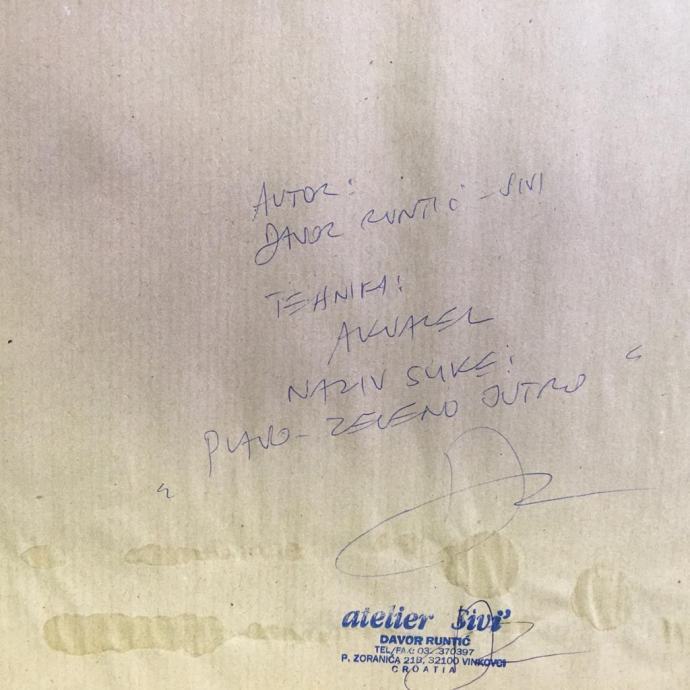 AUTOR:
DAVOR RUNTIĆ - SIVI
TEHNIKA:
AKVAREL
NAZIV SLIKE:
"PLAVO-ZELENO JUTRO"
atelier Sivi'
DAVOR RUNTIĆ
TEL/FAX: 03. 370397
P. ZORANIĆA 21B, 32100 VINKOVCI
CROATIA